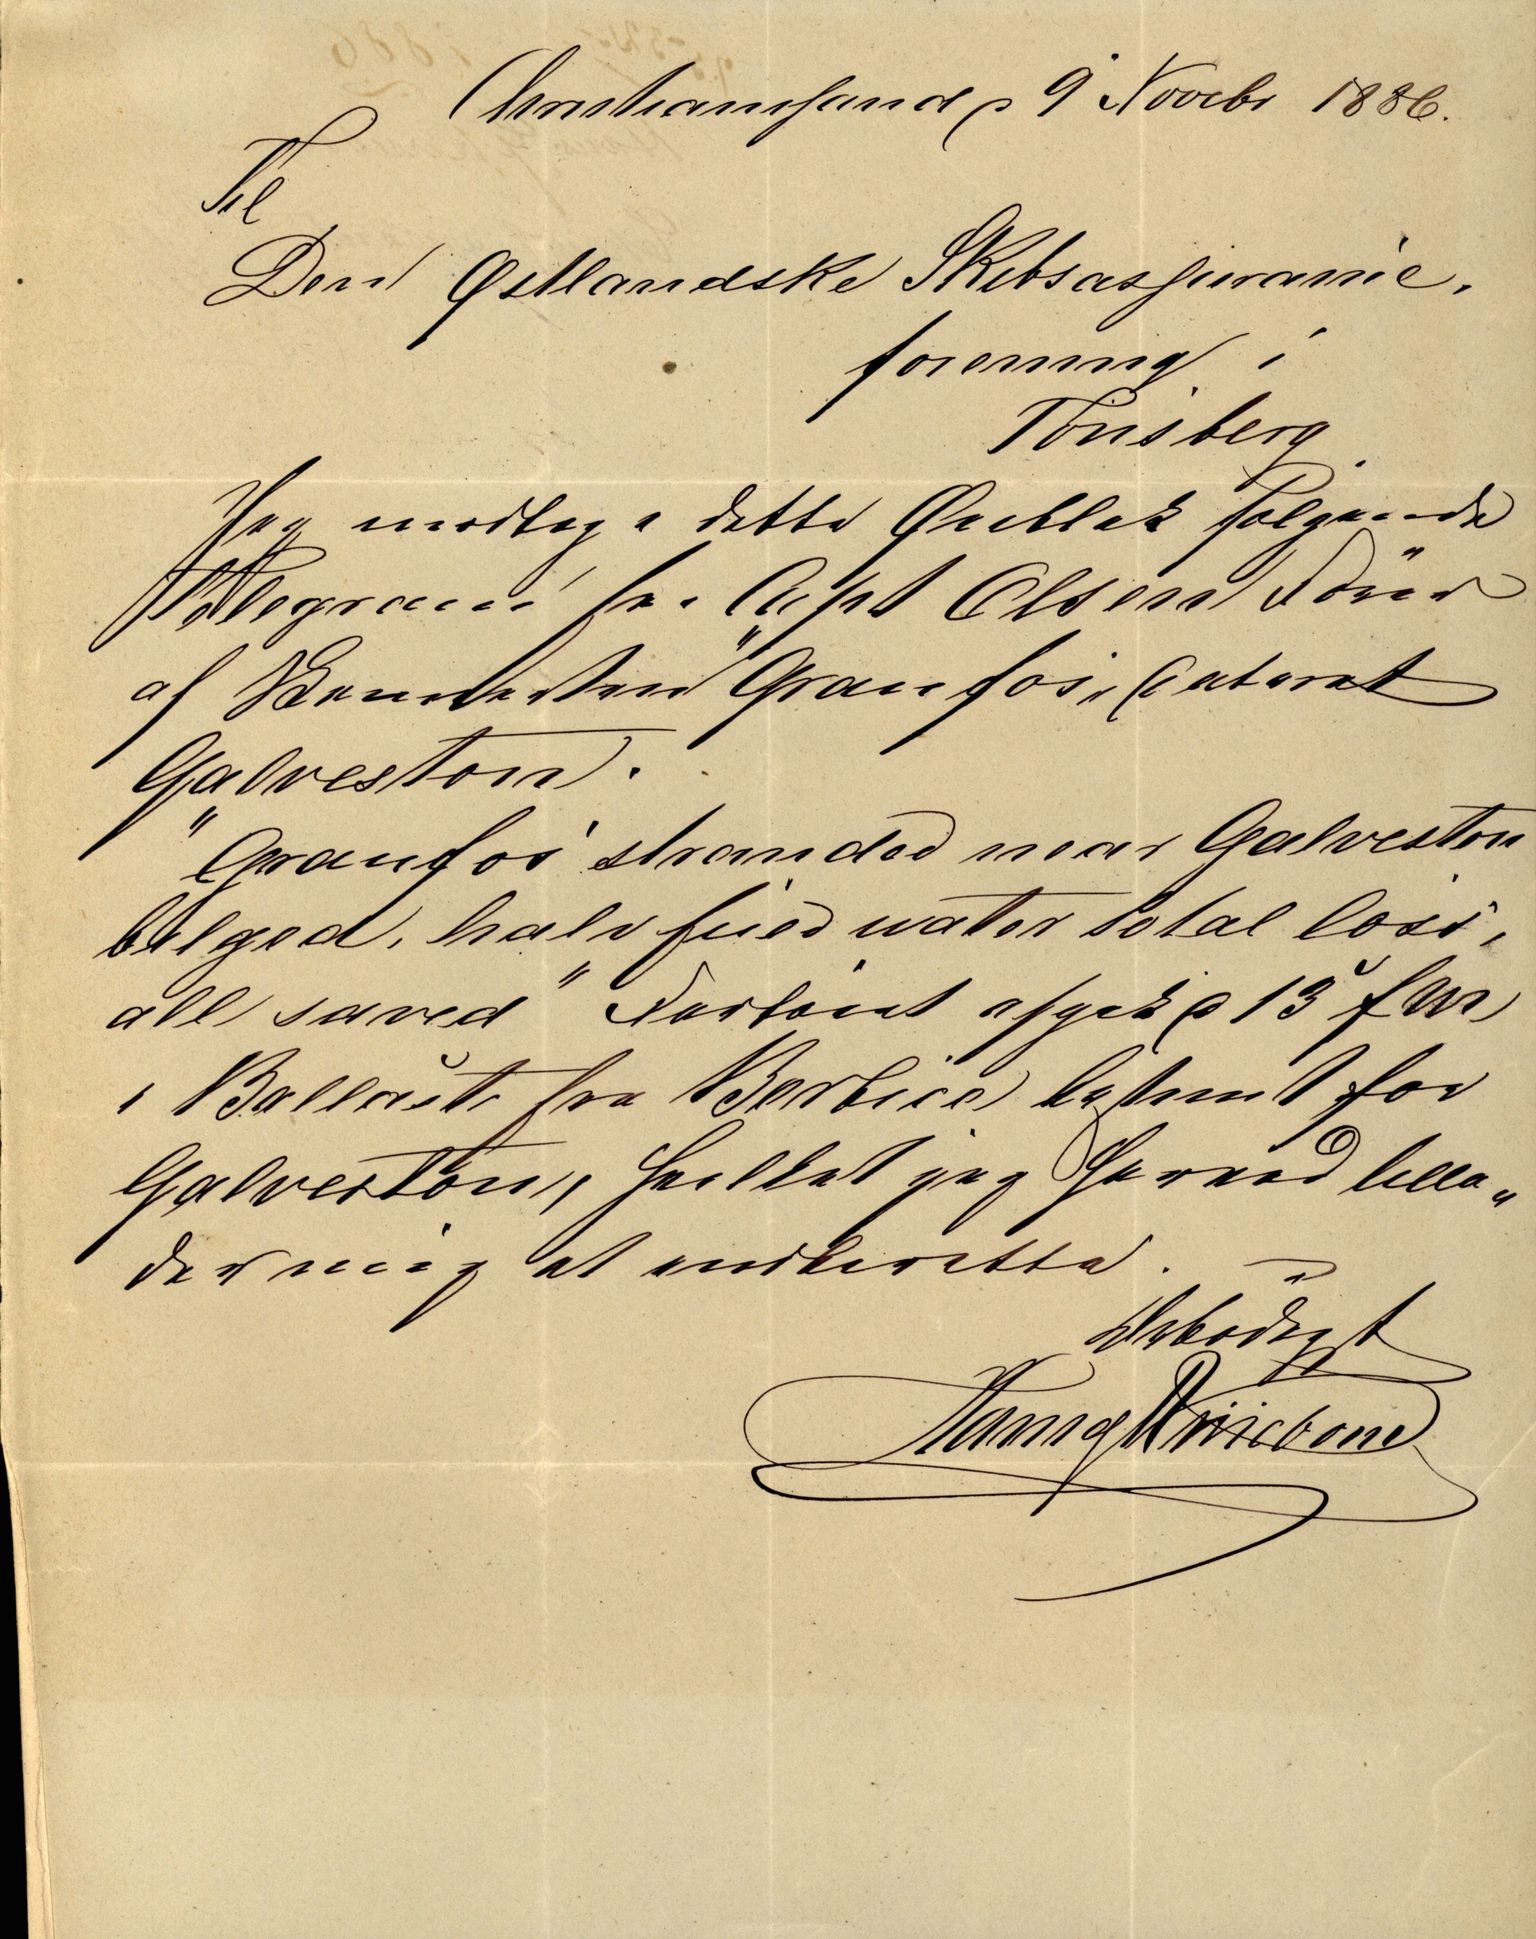 Christiansand d 9 Novebr 1886.
Til
Den Østlandske Skibsassurance.
forening i
Tönsberg
Jeg modtog i dette Øieblik følgende
Telegram fra Capt Olsen Förer
af Skonnerten "Granfos" dateret
Galveston.
"Granfos stranded near Galveston
bilged, halv water total loss,
all saved" Fartöiet afgik d 13 f M
i Ballast fra Berbice bestemt for
Galveston, hvilket jeg herved tilla„
der mig at underrette.
Ærbödigst